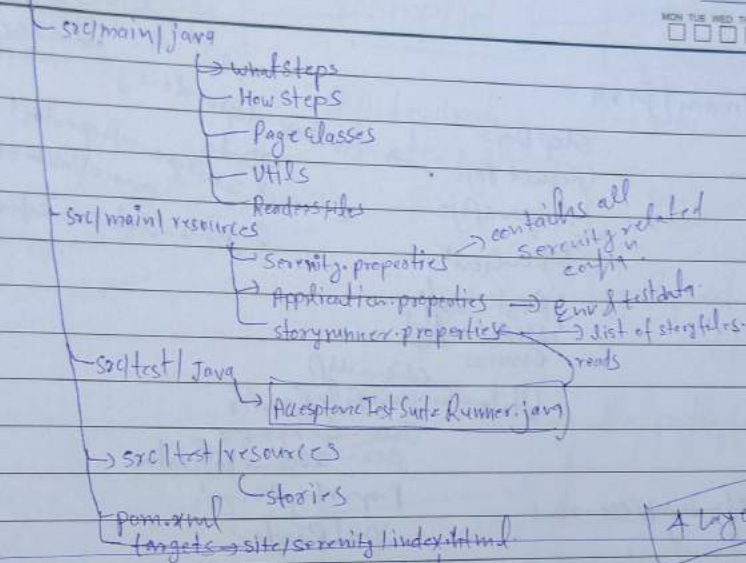 MON TUE WED
src/main/java
whatsteps
How steps
Page classes
Utils
Readers files
src/main/resources
Serenity.properties → contains all serenity related config
Application.propeties → Env & testdata.
storyrunner.properties → list of storyfiles.
reads
src/test/Java
AccesptanceTestSuiteRunner.java
src/test/resources
stories
pom.xml
targets → site/serenity/index.html